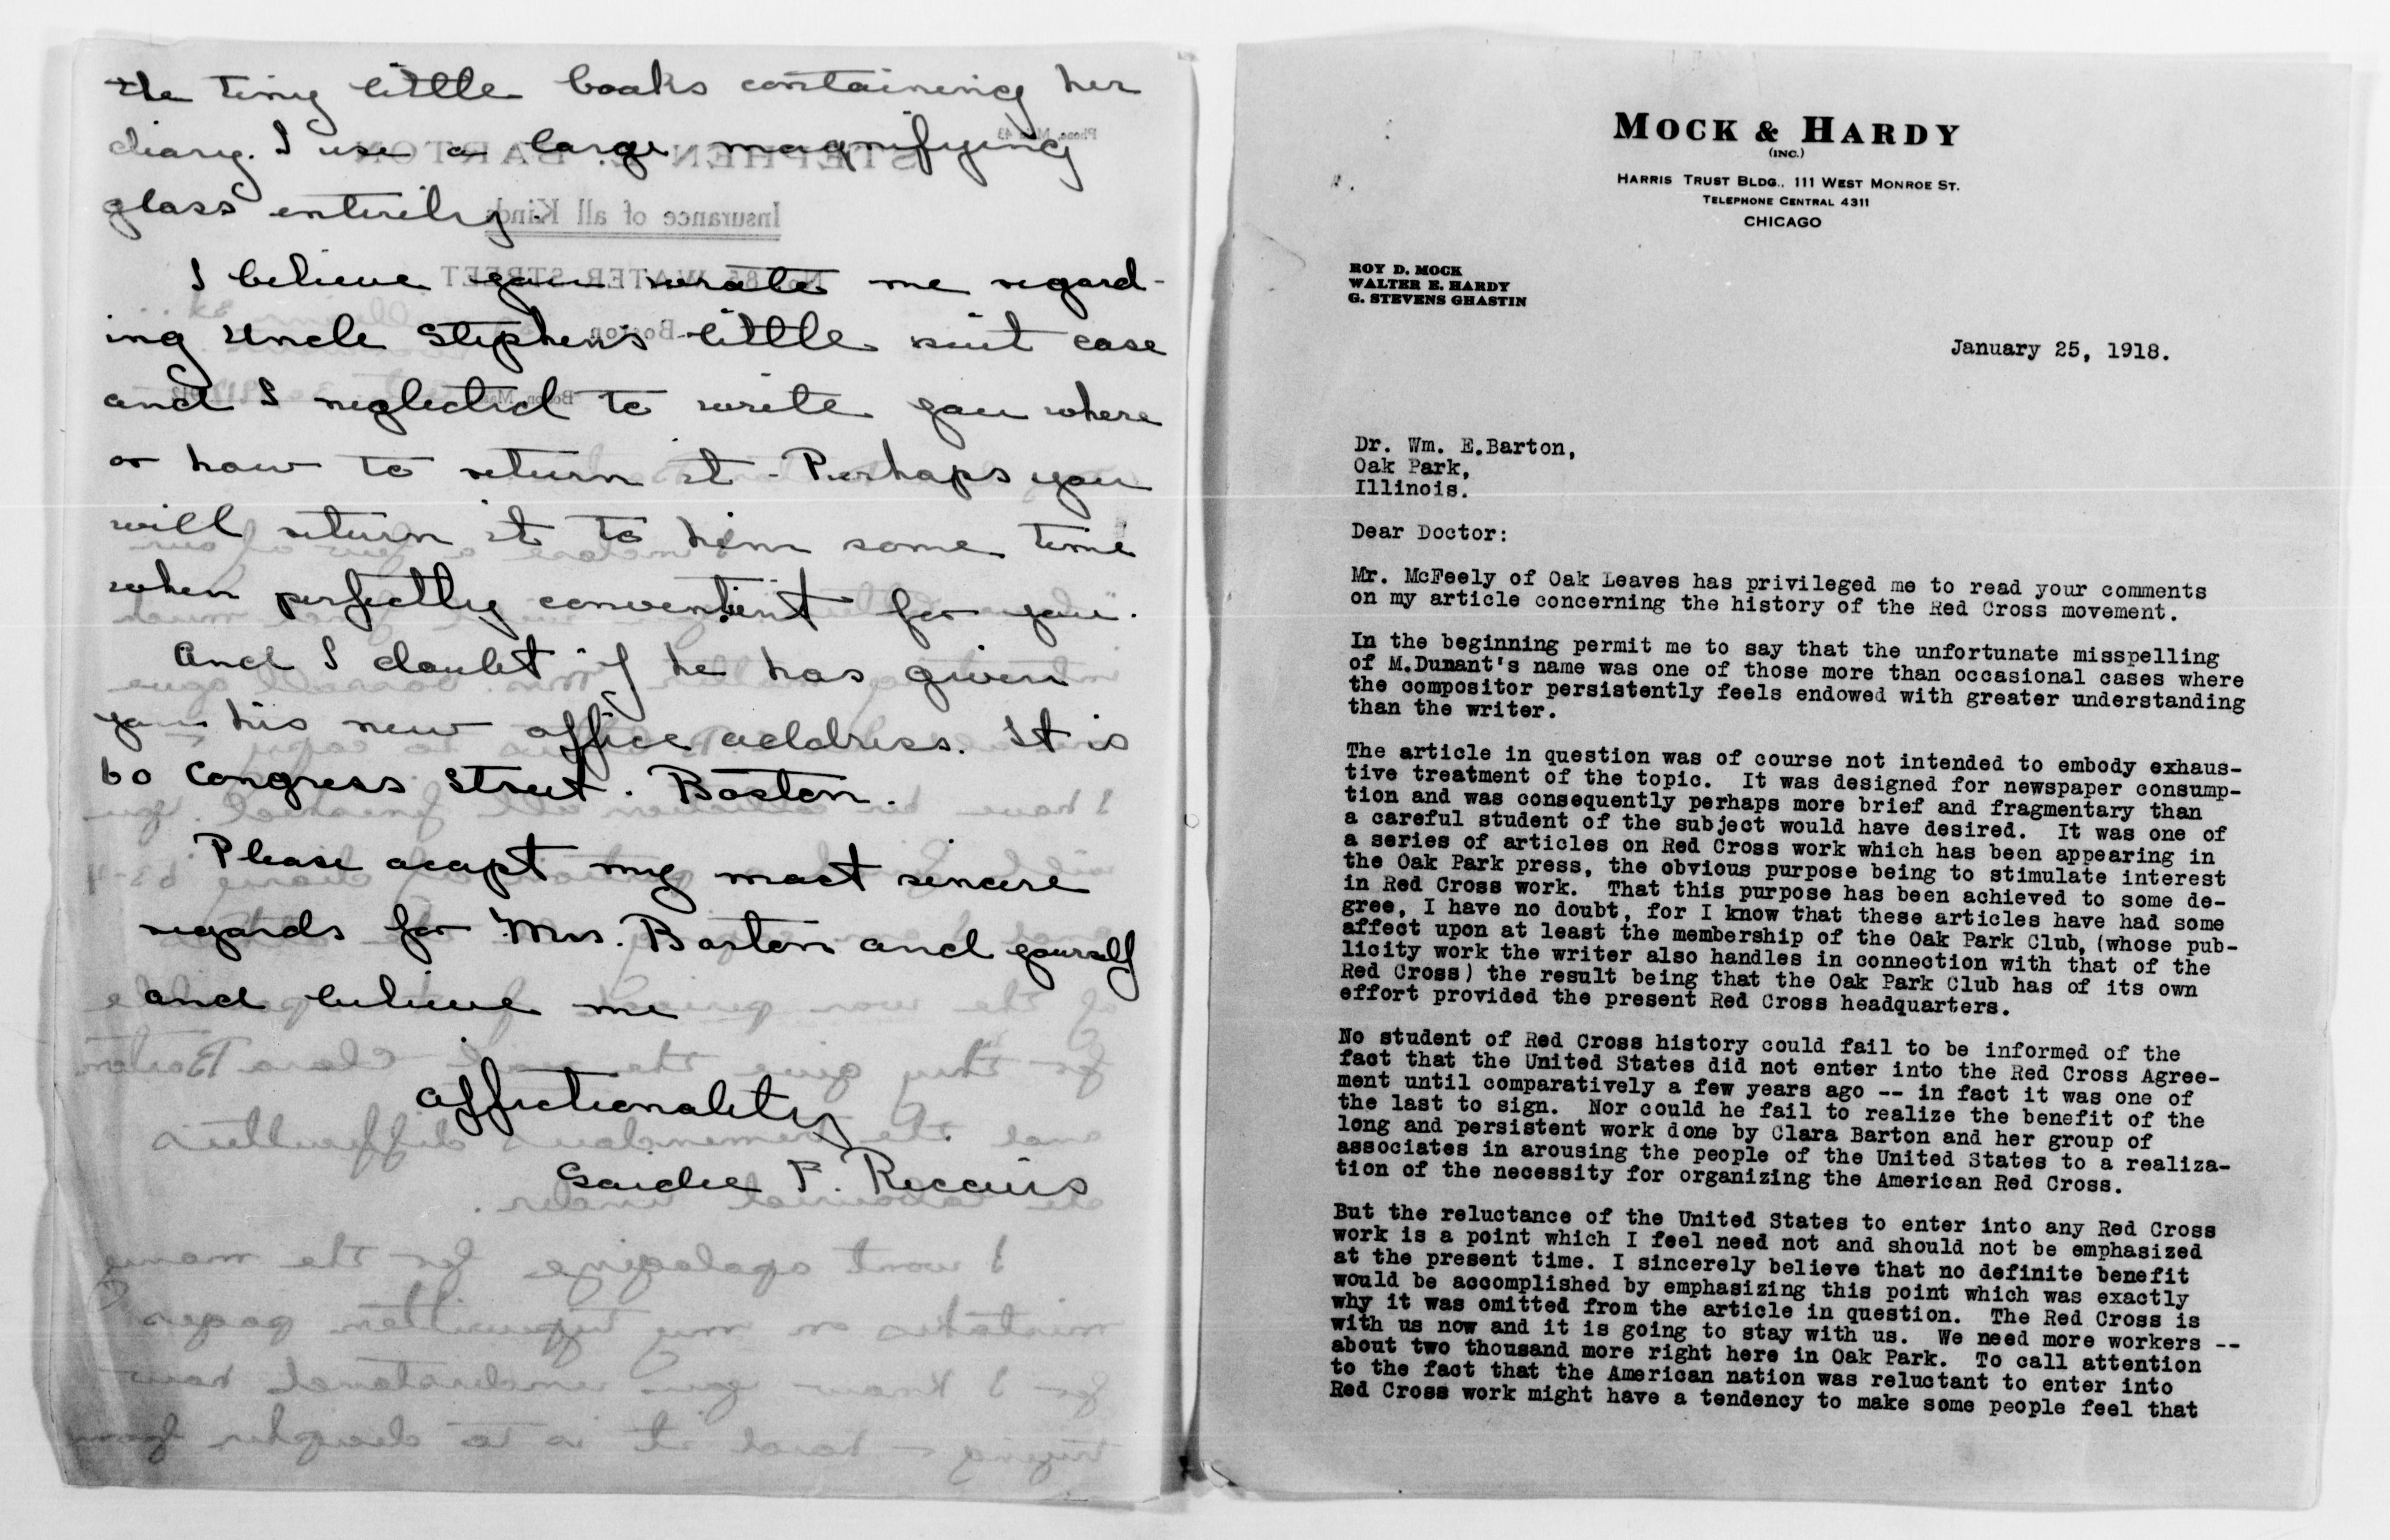 the tiny little books containing her
diary. I use a large magnifying
glass entirely.
I believe you wrote me regard-
ing Uncle Stephen's little suit case
and I neglected to write you where
or how to return it - Perhaps you
will return it to him some time
when perfectly convenient for you.
And I doubt if he has given
you his new office address. It is
60 Congress Street. Boston.
Please accept my most sincere
regards for Mrs. Barton and yourself
and believe me
affectionately
Saidee F. Riccius
STEPHEN E. BARTON
Insurance of all Kinds
No. 85 WATER STREET
Boston
MOCK & HARDY
(INC.)
HARRIS TRUST BLDG., 111 WEST MONROE ST.
TELEPHONE CENTRAL 4311
CHICAGO
ROY D. MOCK
WALTER E. HARDY
G. STEVENS GHASTIN
January 25, 1918.
Dr. Wm. E.Barton,
Oak Park,
Illinois.
Dear Doctor:
Mr. McFeely of Oak Leaves has privileged me to read your comments
on my article concerning the history of the Red Cross movement.
In the beginning permit me to say that the unfortunate misspelling
of M.Dunant's name was one of those more than occasional cases where
the compositor persistently feels endowed with greater understanding
than the writer.
The article in question was of course not intended to embody exhaus-
tive treatment of the topic. It was designed for newspaper consump-
tion and was consequently perhaps more brief and fragmentary than
a careful student of the subject would have desired. It was one of
a series of articles on Red Cross work which has been appearing in
the Oak Park press, the obvious purpose being to stimulate interest
in Red Cross work. That this purpose has been achieved to some de-
gree, I have no doubt, for I know that these articles have had some
affect upon at least the membership of the Oak Park Club, (whose pub-
licity work the writer also handles in connection with that of the
Red Cross) the result being that the Oak Park Club has of its own
effort provided the present Red Cross headquarters.
No student of Red Cross history could fail to be informed of the
fact that the United States did not enter into the Red Cross Agree-
ment until comparatively a few years ago -- in fact it was one of
the last to sign. Nor could he fail to realize the benefit of the
long and persistent work done by Clara Barton and her group of
associates in arousing the people of the United States to a realiza-
tion of the necessity for organizing the American Red Cross.
But the reluctance of the United States to enter into any Red Cross
work is a point which I feel need not and should not be emphasized
at the present time. I sincerely believe that no definite benefit
would be accomplished by emphasizing this point which was exactly
why it was omitted from the article in question. The Red Cross is
with us now and it is going to stay with us. We need more workers --
about two thousand more right here in Oak Park. To call attention
to the fact that the American nation was reluctant to enter into
Red Cross work might have a tendency to make some people feel that